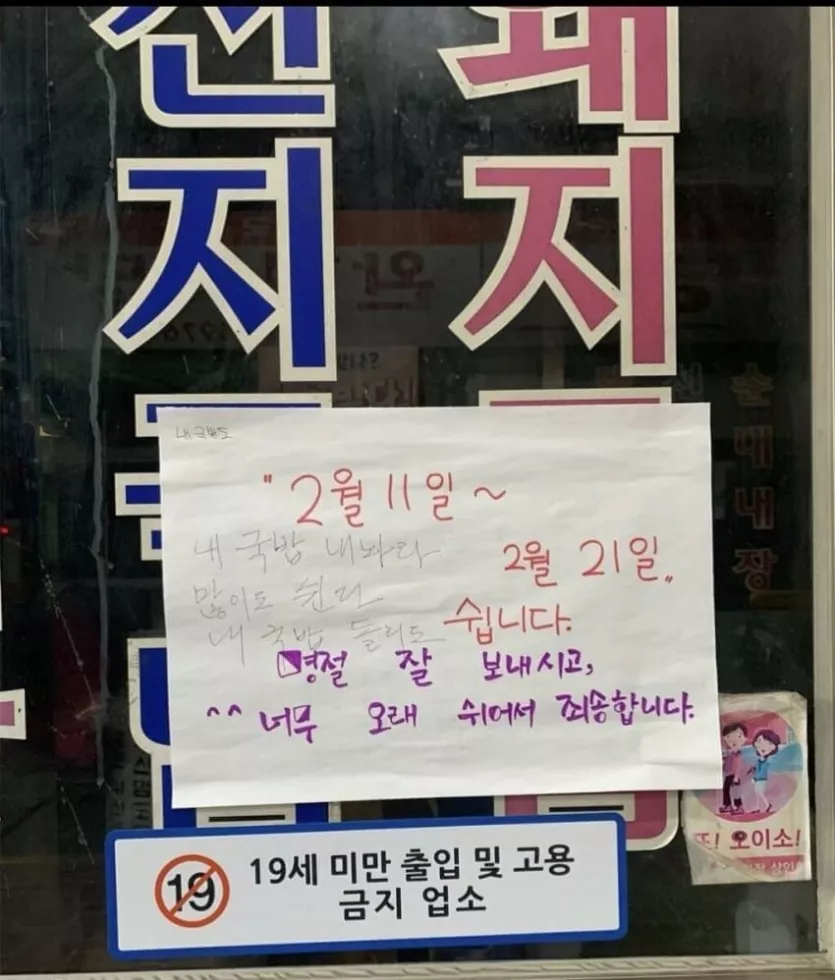 전 돼
지 지
내 국밥
"2월 11일 ~
2월 21일"
쉽니다.
내 국밥 내놔라
많이도 쉰다
내 국밥 돌리도
명절 잘 보내시고,
^^ 너무 오래 쉬어서 죄송합니다.
순대내장
또! 오이소!
19
19세 미만 출입 및 고용
금지 업소